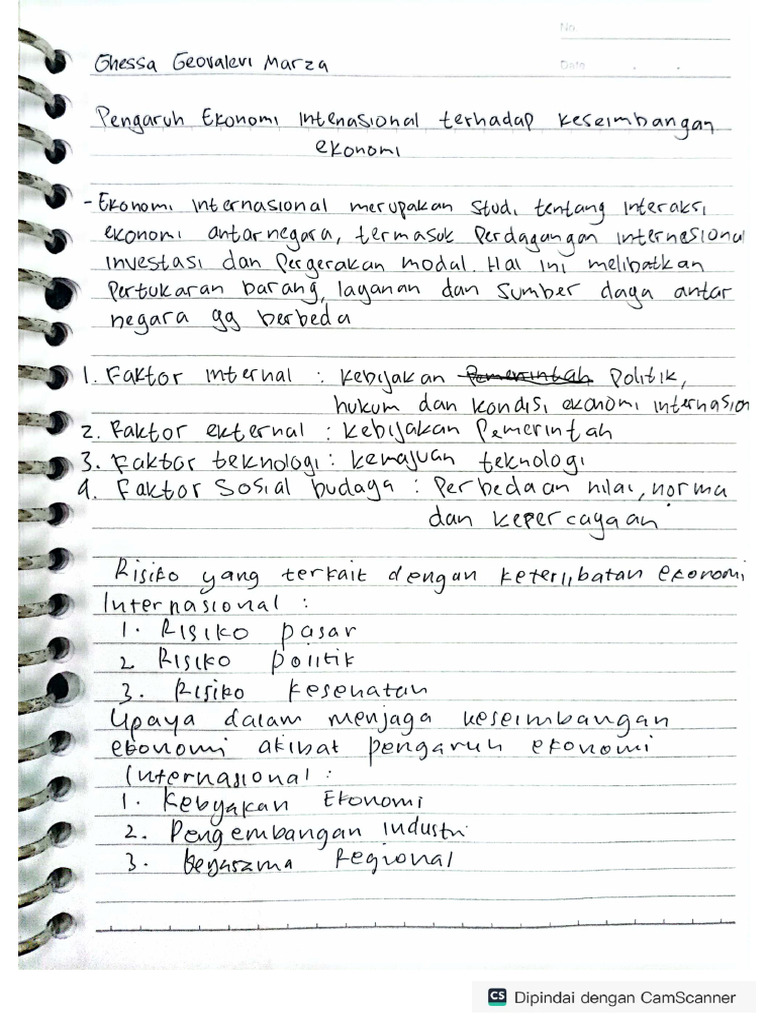 No.
Date
Ghessa Geovalevi Marza
Pengaruh Ekonomi Intenasional terhadap keseimbangan
ekonomi
- Ekonomi internasional merupakan studi tentang interaksi
ekonomi antarnegara, termasuk perdagangan internesional
investasi dan pergerakan modal. Hal ini melibatkan
pertukaran barang, layanan dan sumber daya antar
negara yg berbeda
1. Faktor internal : kebijakan Pemerintah politik,
hukum dan kondisi ekonomi internasion
2. Faktor ekternal : kebijakan Pemerintah
3. Faktor teknologi : kemajuan teknologi
4. Faktor Sosial budaya : Perbedaan nilai, norma
dan kepercayaan
Risiko yang terkait dengan keterlibatan ekonomi
Internasional :
1. Risiko pasar
2 Risiko politik
3. Risiko kesehatan
Upaya dalam menjaga keseimbangan
ekonomi akibat pengaruh ekonomi
Internasional :
1. Kebijakan Ekonomi
2. Pengembangan industri
3. Regional
CS Dipindai dengan CamScanner